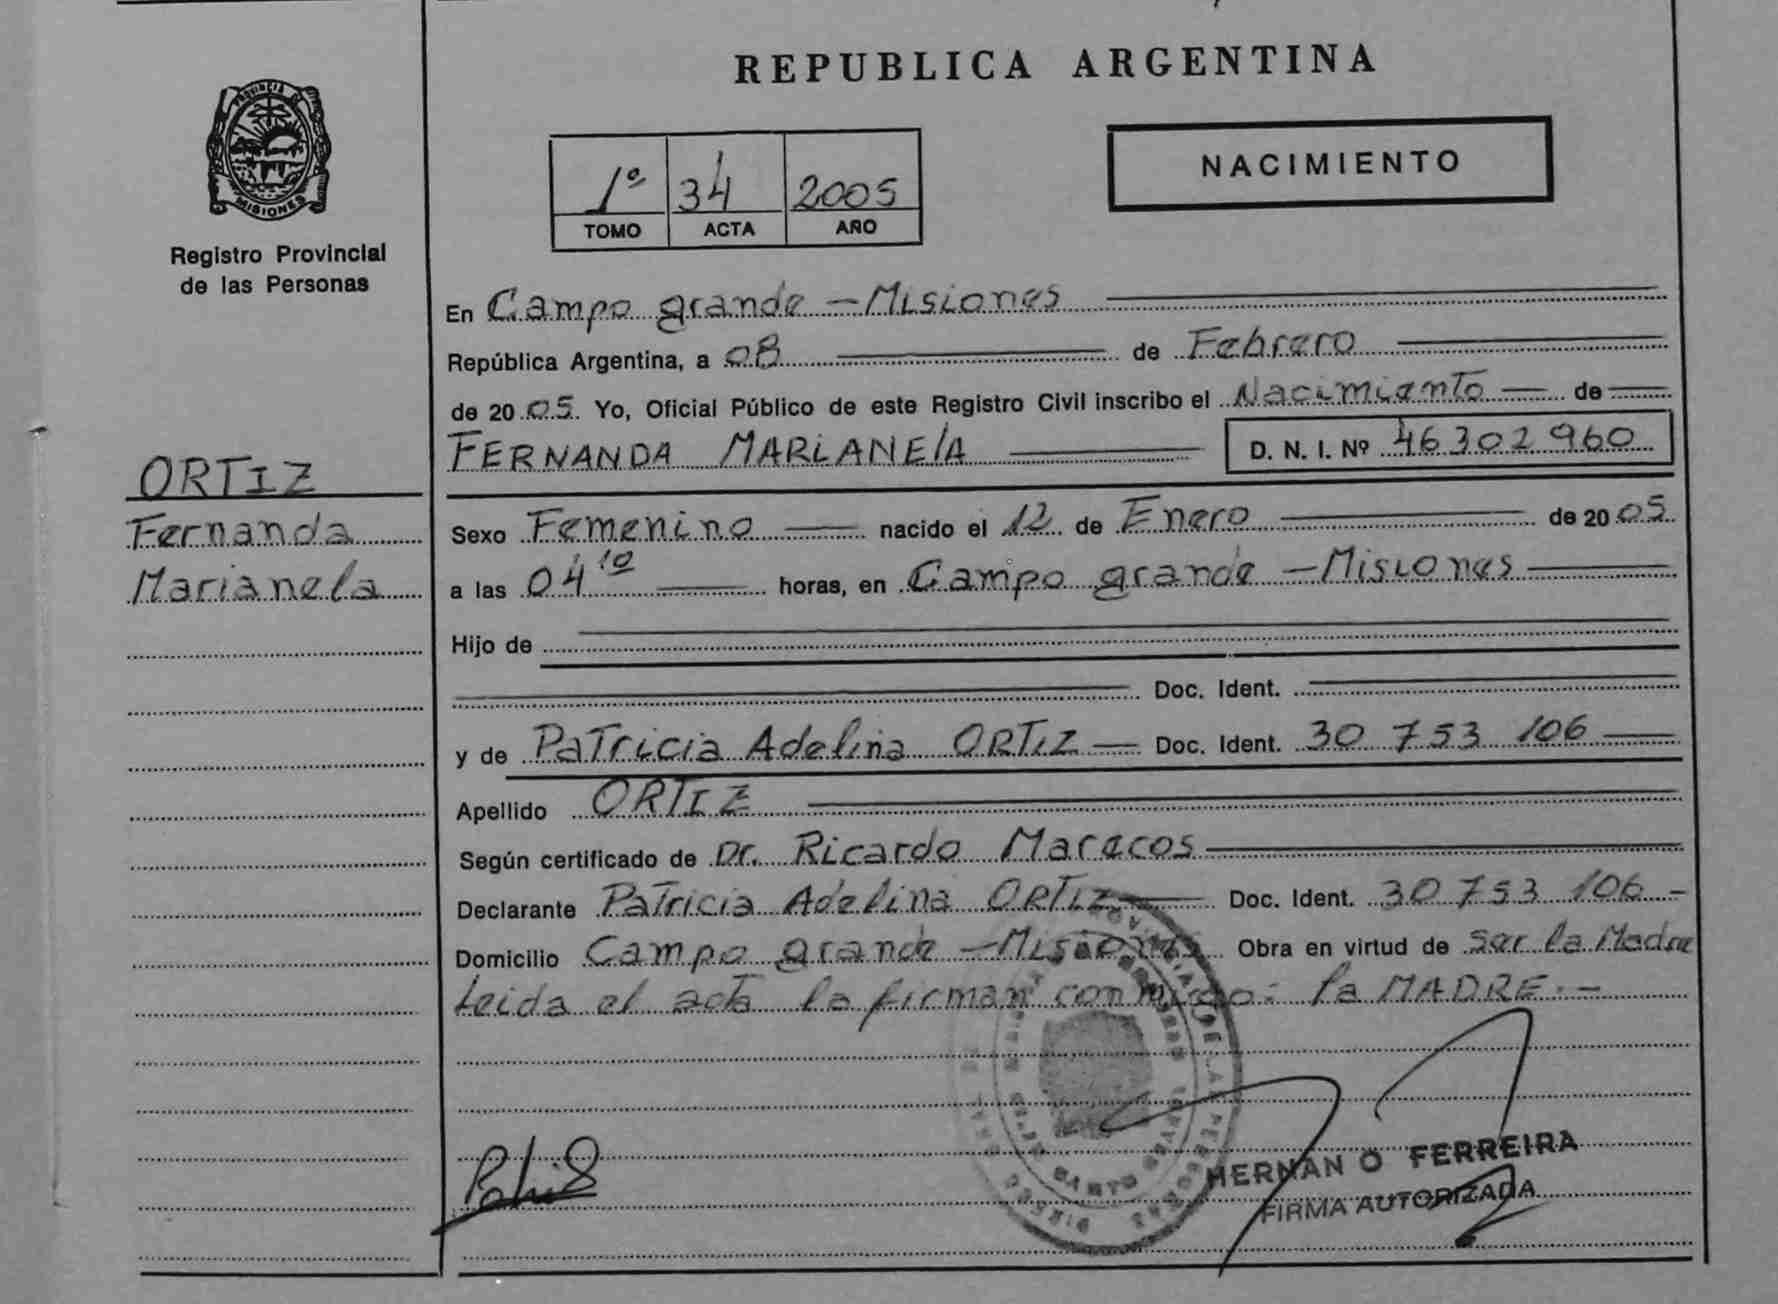 REPUBLICA ARGENTINA
PROVINCIA DE
MISIONES
Registro Provincial
de las Personas
1º 34 2005
TOMO ACTA AÑO
NACIMIENTO
En Campo grande - Misiones
República Argentina, a 08 de Febrero
de 2005. Yo, Oficial Público de este Registro Civil inscribo el Nacimiento de
FERNANDA MARIANElA D. N. I. Nº 46302960
ORTIZ
Fernanda
Marianela
Sexo Femenino nacido el 12 de Enero de 2005
a las 04 10 horas, en Campo grande - Misiones
Hijo de
Doc. Ident.
y de Patricia Adelina ORTIZ Doc. Ident. 30 753 106
Apellido ORTIZ
Según certificado de Dr. Ricardo
Declarante Patricia Adelina ORTIZ Doc. Ident. 30 753 106 -
Domicilio Campo grande - Misiones Obra en virtud de ser la Madre
Leida el acta la firman conmigo: la MADRE. -
HERNAN O FERREIRA
FIRMA AUTORIZADA